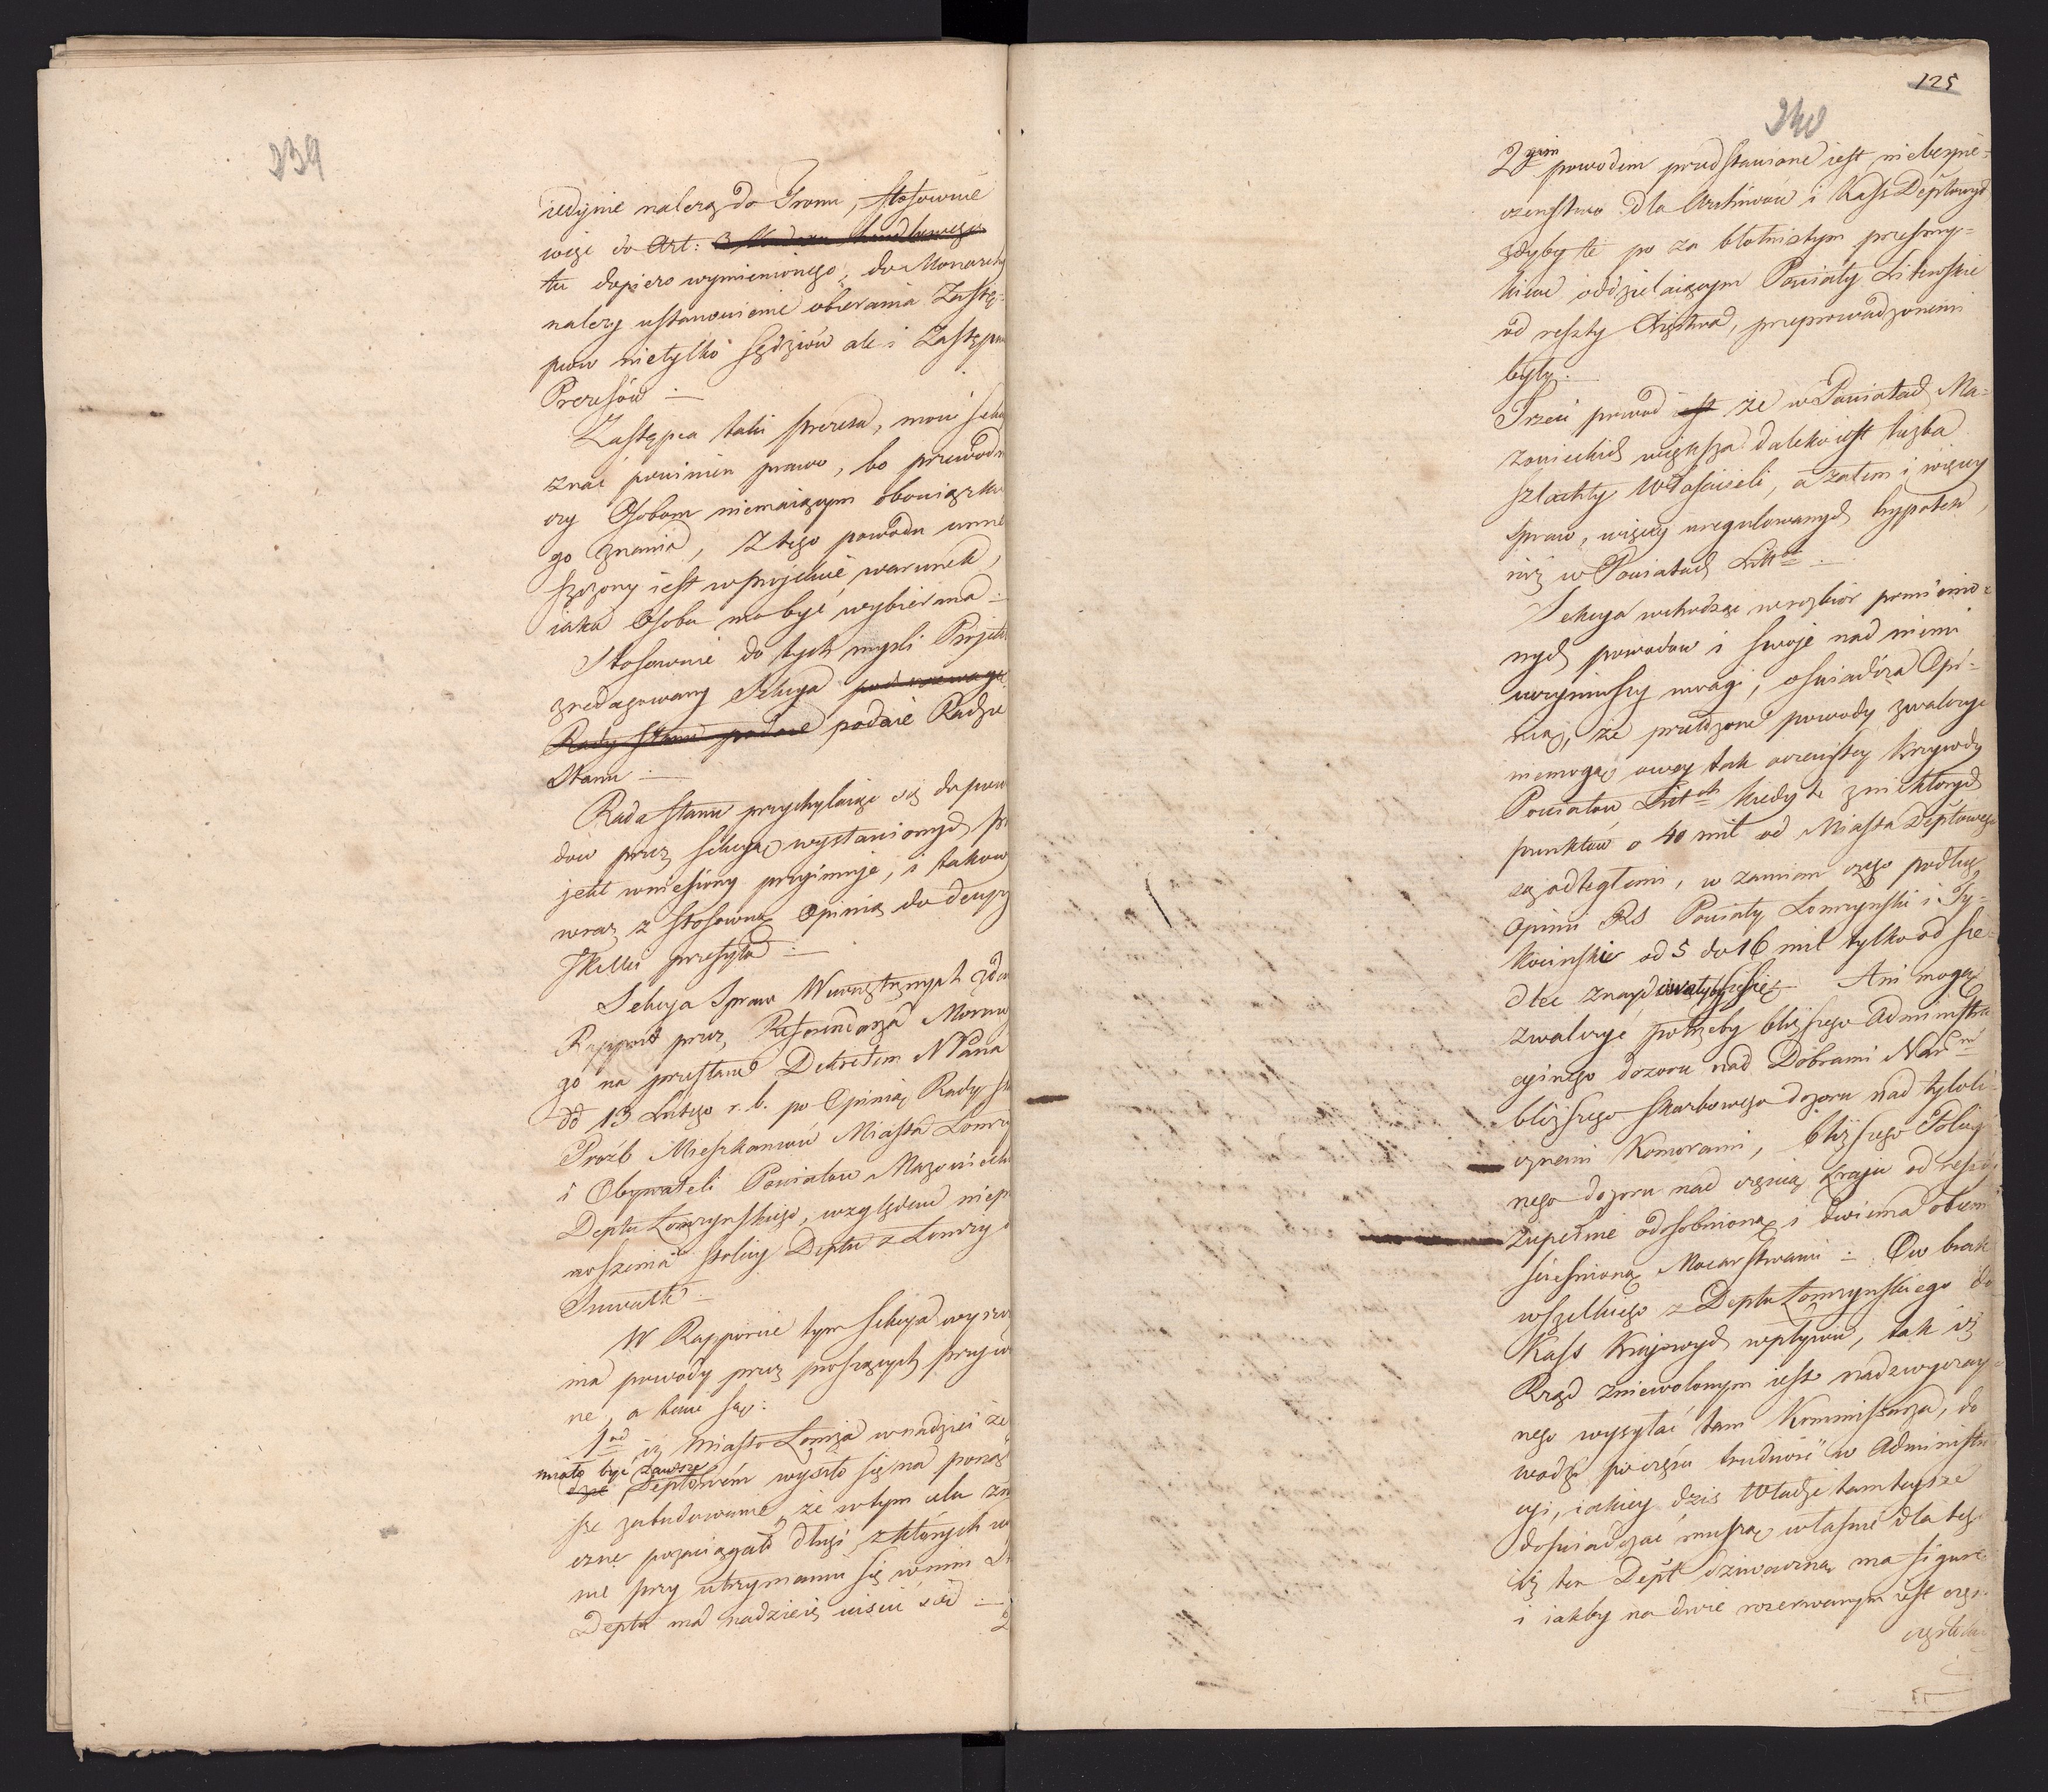 339
iedynie należą do Tronu, stosownie
więc do Art: 3 Kodexu handlowego
tu dopiero wymienionego, do Monarchy
należy ustanowienie obierania Zastęp-
ców nietylko sędziów ale i Zastępców
Prezesów —
Zastępca taki prezesa, mówi sekcya
znać powinien prawo, bo przewodni
czy Osobom niemaiącym obowiązku
go znania, z tego powodu umie
szczony iest w projekcie warunek,
iaka Osoba ma być wybierana —
Stosownie do tych myśli Projekt
zredagowany Sekcya pod rozwagę
Rady Stanu podaie podaie Radzie
Stanu —
Rada Stanu przychylaiąc się do powo
dów przez sekcyą wystawionych pro
jekt wniesiony przyimuje, i takowy
wraz z stosowną Opinią do decyzyi
JKMci przesyła —
Sekcya Spraw Wewnętrznych zdaie
Rapport przez Referendarza
go na przesłane Dekretem NPana
dd 13 Lutego r. b. po Opinią Rady Sta
Proźb Mieszkańców Miasta Łomży
i Obywateli Powiatów Mazowieckich
Deptu Łomżyńskiego, względem niep
noszenia stolicy Deptu z Łomży do
Suwałk —
W Rapporcie tym sekcya wyszcze
nia powody przez proszących przywie
ne, a temi są:
1od iż Miasto Łomża w nadziei że
miało być zawsze
Deptowém wysiło się na porząd
sze zabudowanie, że w tym celu zna
czne pozaciągało długi, z których
nie przy utrzymaniu się w nim
Deptu ma nadzieię uiścić się —
2
125
340
2gim powodem przedstawione iest niebezpie-
czeństwo dla Archiwów i Kass Deptowych
gdyby te po za błotnistym przesmy-
kiem oddzielaiącym Powiaty Litewskie
od reszty Xięstwa, przeprowadzonemi
były.
Trzeci powód iest że w Powiatach Ma-
zowieckich większa daleko iest liczba
szlachty Właścicieli, a zatem i więcey
spraw, więcey uregulowanych hypotek,
niż w Powiatach Litt.ch
Sekcya wchodząc w rozbiór pomienio-
nych powodów i swoje nad niemi
uczyniwszy uwagi, oświadcza Opi-
nią, że przytoczone powody zwalczyć
niemogą owey tak oczewistey krzywdy
Powiatów Litt.ch kiedy te z niektorych
punktów o 40 mil od Miasta Deptowego
są odległemi, w zamian czego podług
Opinii RS Powiaty Łomżyński i Ty-
kociński od 5 do 16 mil tylko od Sie-
dlec znaydowałyby się — Ani mogą
zwalczyć potrzeby bliższego administra
cyinego dozoru nad Dobrami Nar.mi
bliższego skarbowego dozoru nad tyloli-
cznemi Komorami, bliższego Policyi
nego dozoru nad częścią kraju od reszty
zupełnie odosobnioną i dwiema obcemi
ścieśnioną Mocarstwami — Ów brak
wszelkiego z Deptu Łomżyńskiego do
Kass Krajowych wpływu, tak iż
Rząd zniewolonym iest nadzwyczay-
nego wysyłać tam Kommissarza, do
wodzi po części trudność w Administra
cyi, iakiey dziś Władze tamteysze
doświadczać muszą własnie dla tego
iż ten Dept dziwaczną ma figurę
i iakby na dwie rozerwanym iest części